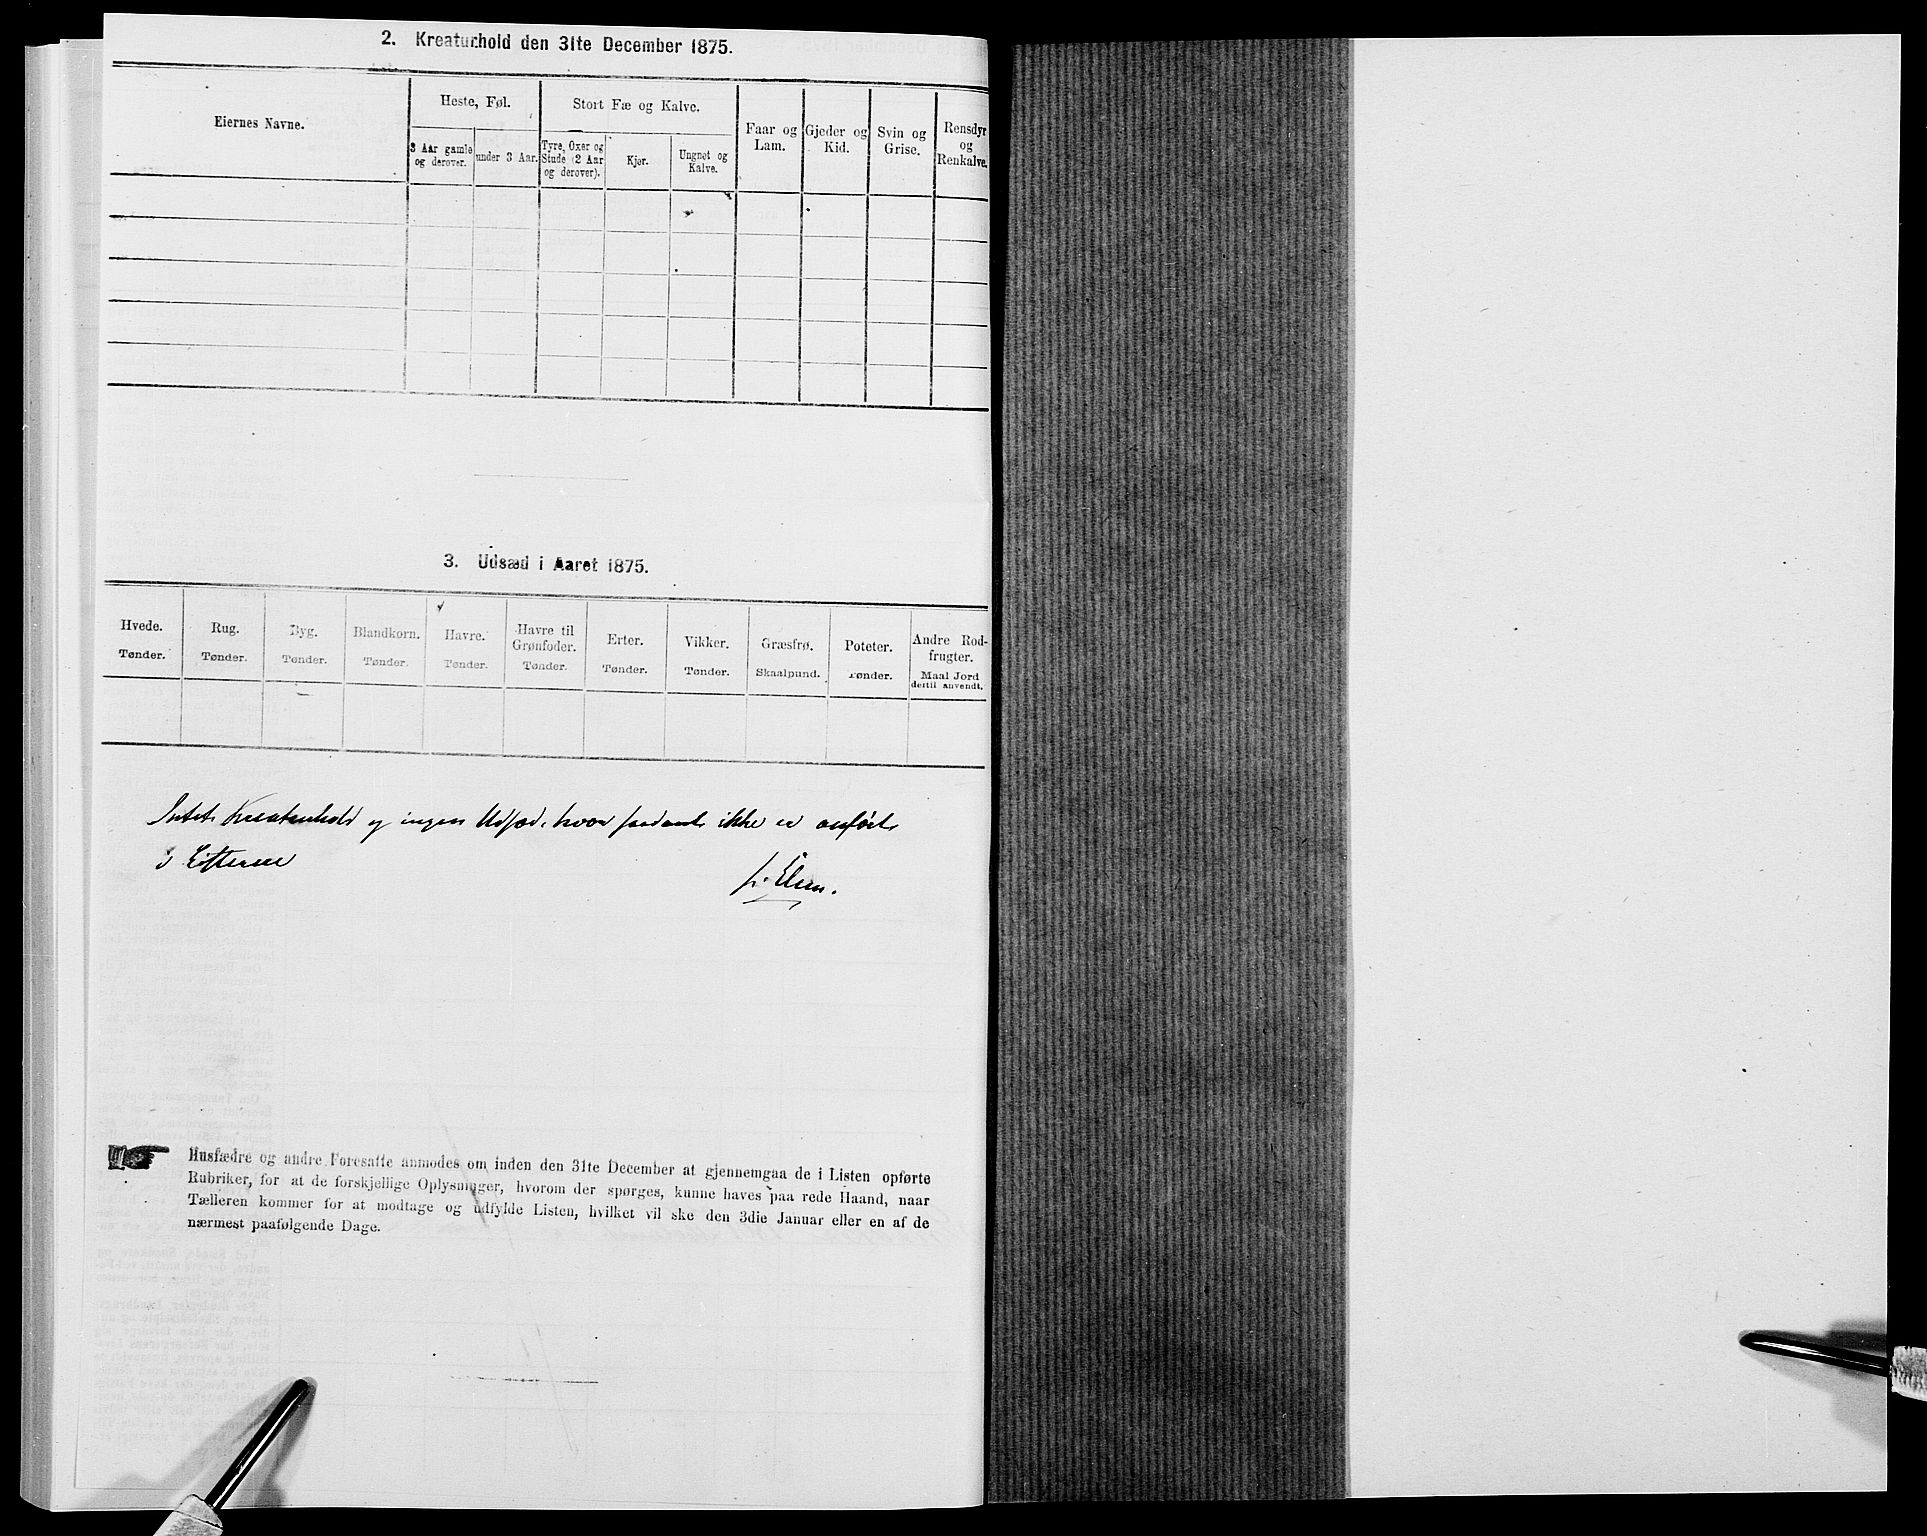 2. Kreaturhold den 31te December 1875.
Eiernes Navne.
Heste, Føl.
3 Aar gamle
og derover.
under 3 Aar.
Stort Fæ og Kalve.
Tyre, Oxer og
Stude (2 Aar
og derover).
Kjør.
Ungnøt og
Kalve.
Faar og
Lam.
Gjeder og
Kid.
Svin og
Grise.
Rensdyr
og
Renkalve.
3. Udsæd i Aaret 1875.
Hvede.
Tønder.
Rug.
Tønder.
Byg.
Tønder.
Blandkorn.
Tønder.
Havre.
Tønder.
Havre til
Grønfoder.
Tønder.
Erter.
Tønder.
Vikker.
Tønder.
Græsfrø.
Skaalpund.
Poteter.
Tønder.
Andre Rod-
frugter.
Maal Jord
dertil anvendt.
Intet Kreaturhold og ingen Udsæd, hvor saadant ikke er anført
i Listerne
Husfædre og andre Foresatte anmodes om inden den 31te December at gjennemgaa de i Listen opførte
Rubriker, for at de forskjellige Oplysninger, hvorom der spørges, kunne haves paa rede Haand, naar
Tælleren kommer for at modtage og udfylde Listen, hvilket vil ske den 3die Januar eller en af de
nærmest paafølgende Dage.